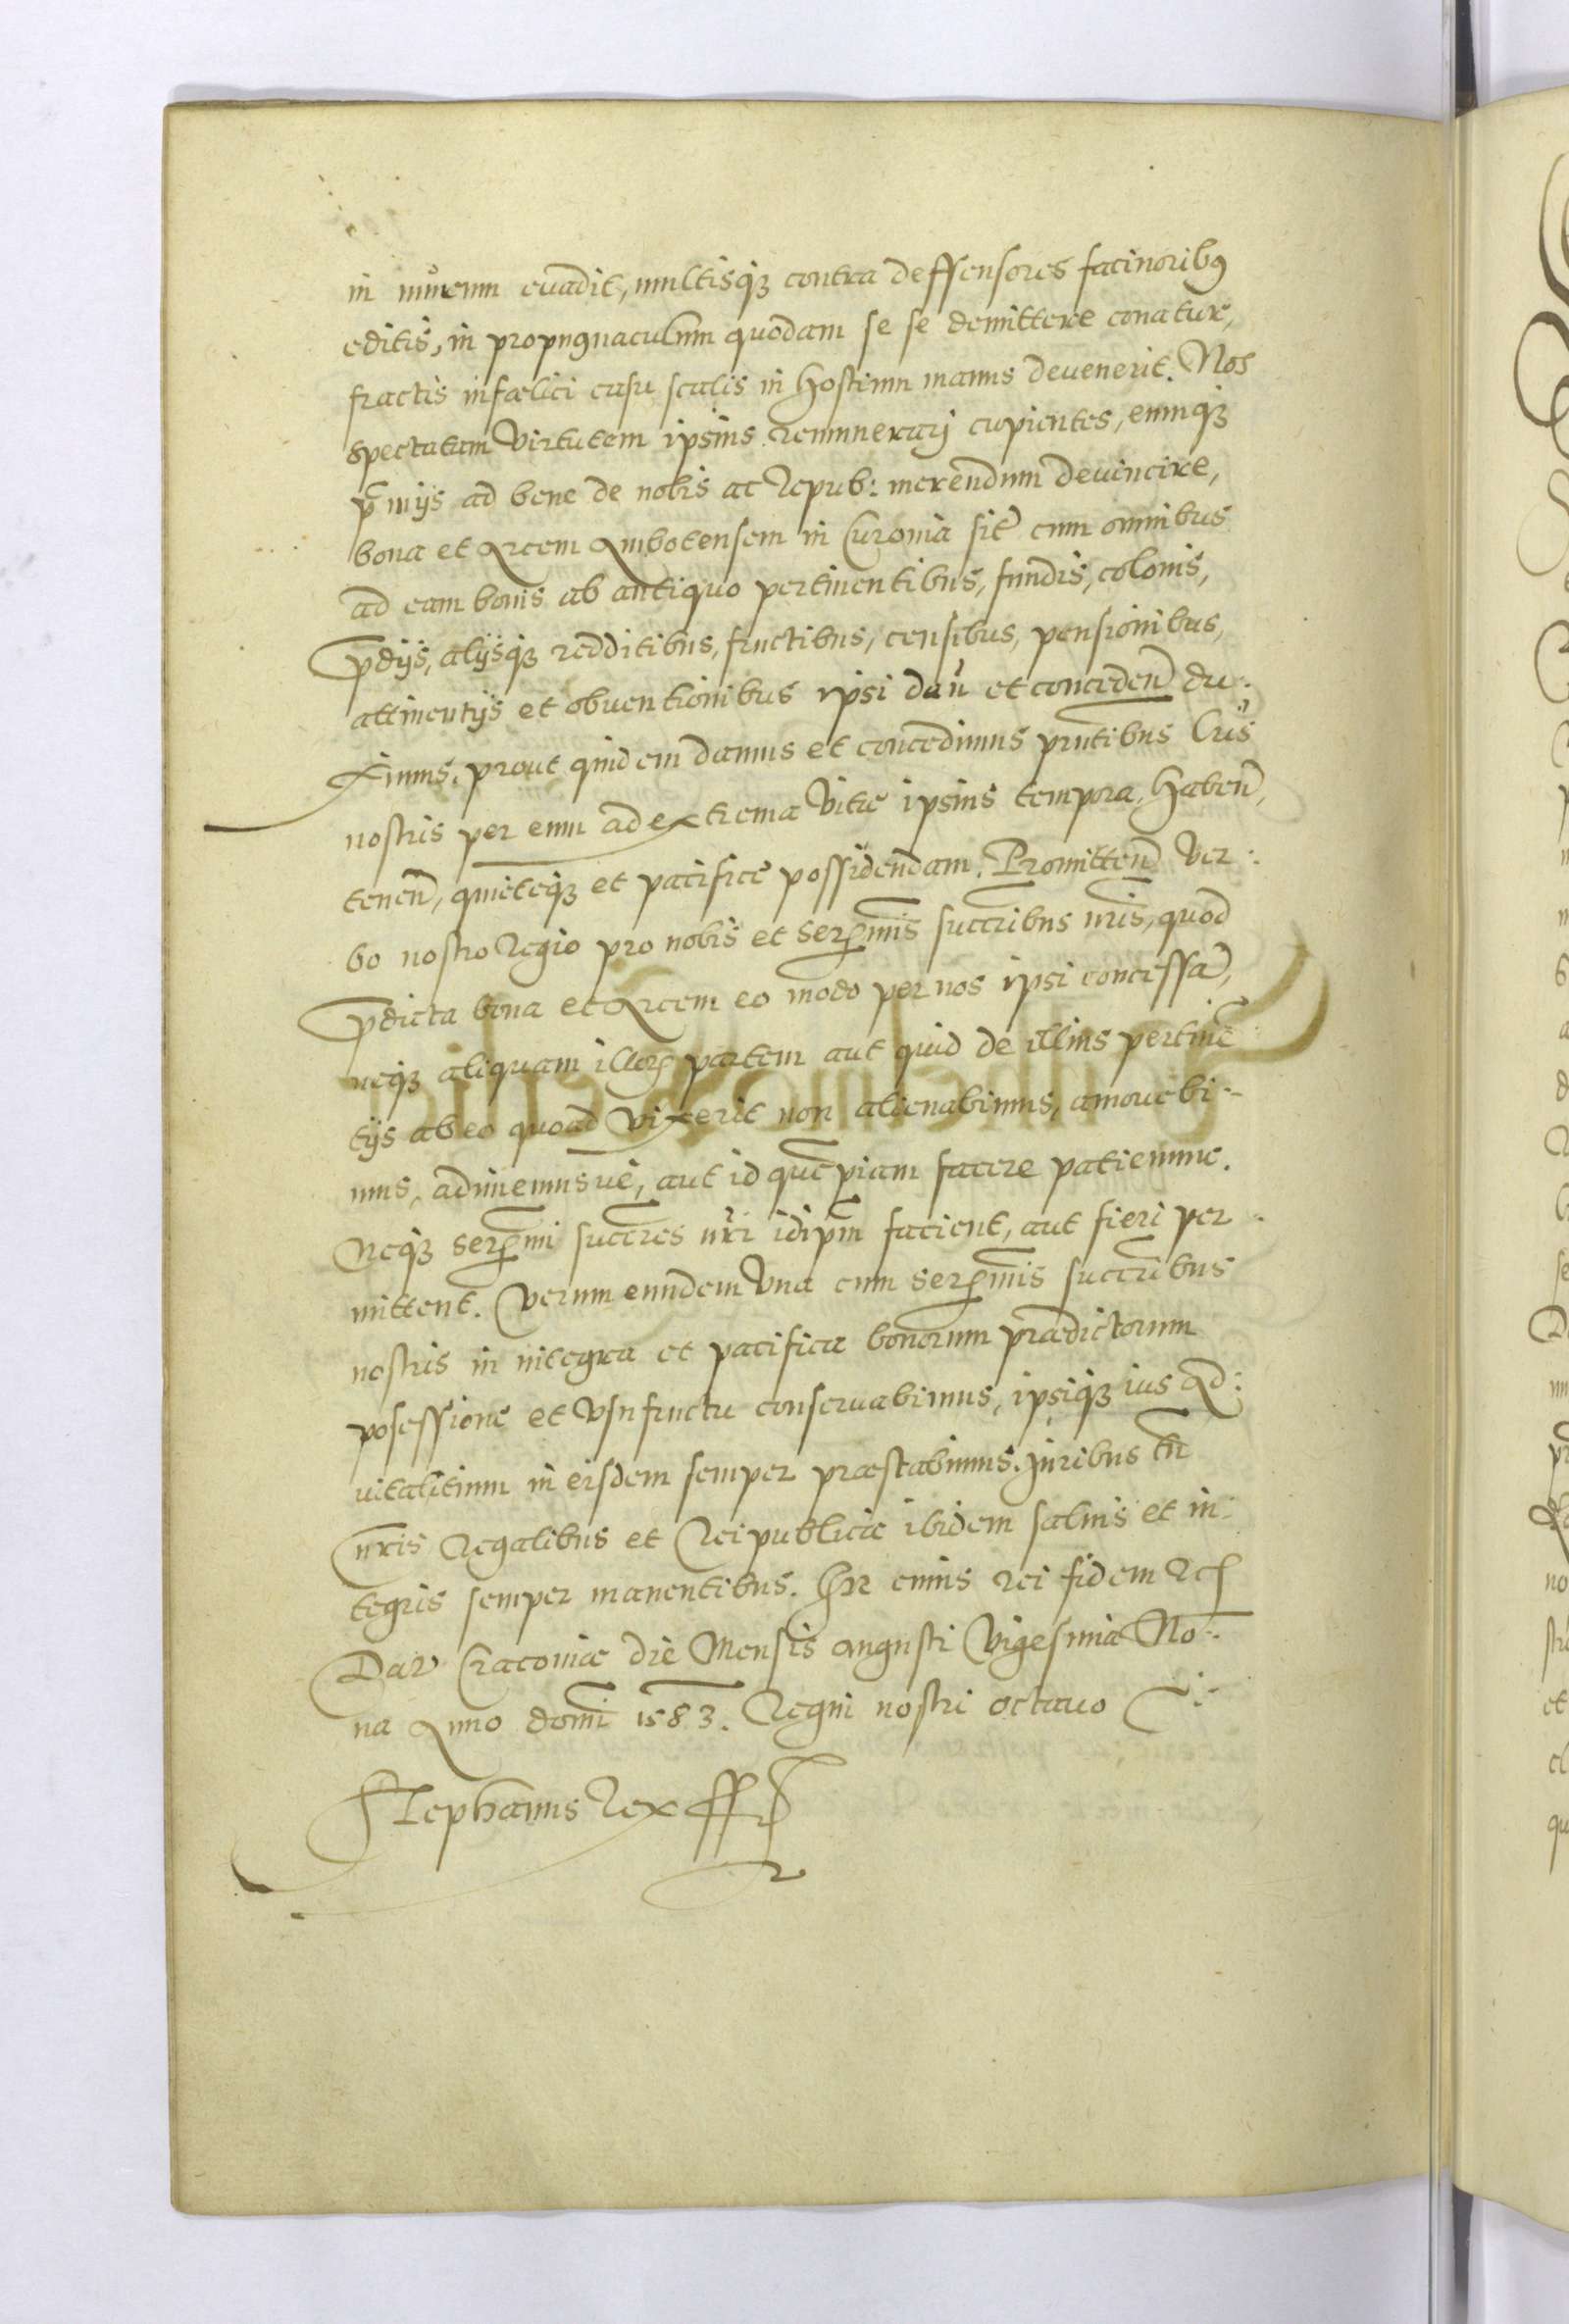 in murum euadit, multisqꝫ contra deffensores facinoribꝯ
editis, in propugnaculum quodam se se demittere conatur,
fractis infœlici casu scalis in hostium manus deuenerit. Nos
spectatam virtutem ipsius remunerarj cupientes, eumqꝫ
p̄mijs ad bene de nobis ac Repub: merendum deuincire,
bona et Arcem Ambotensem in Curonia sit̃ cum omnibus
ad eam bonis ab antiquo pertinentibus, fundis, colonis,
p̄dijs, alijsqꝫ redditibus, fructibus, censibus, pensionibus,
attinentijs et obuentionibus ipsi dañ et conceden̄ du:
ximus, prout quidem damus et concedimus pn̄tibus Lr̄is
nostris per eum ad extrema vitæ ipsius tempora, haben̄,
tenen̄, quieteqꝫ et pacifice possidendam. Promitten̄ ver:
bo nostro Regio pro nobis et Serm̄is succr̄ibus nr̄is, quod
p̄dicta bona et Arcem eo modo per nos ipsi concessã,
neqꝫ aliquam illorꝝ partem aut quid de illius pertinē
tijs ab eo quoad vixerit non alienabimus, amouebi:
mus, adimemusue, aut id quēpiam facere patiemur.
Neqꝫ Serm̄i succr̄es nr̄i idip̄m facient, aut fieri per
mittent. Verum eundem vna cum Serm̄is succr̄ibus
nostris in integra et pacifica bonorum prædictorum
posessione et vsufructu conseruabimus, ipsiqꝫ ius Ad:
uitalitium in eisdem semper præstabimus. Juribus tn̄
nr̄is Regalibus et Reipublicæ ibidem saluis et in:
tegris semper manentibus. In cuius rei fidem Rcꝭ
Dat̃ Cracoviæ die Mensis augusti Vigesima No:
na Anno domī 1583. Regni nostri octauo
Stephanus Rex sst